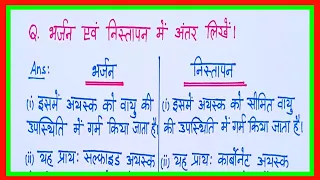 Q. भर्जन एवं निस्तापन में अंतर लिखें।
Ans: भर्जन निस्तापन
(i) इसमें अयस्क को वायु की (i) इसमें अयस्क को सीमित वायु
उपस्थिति में गर्म किया जाता है। की उपस्थिति में गर्म किया जाता है।
(ii) यह प्रायः सल्फाइड अयस्क (ii) यह प्रायः कार्बोनेट अयस्क